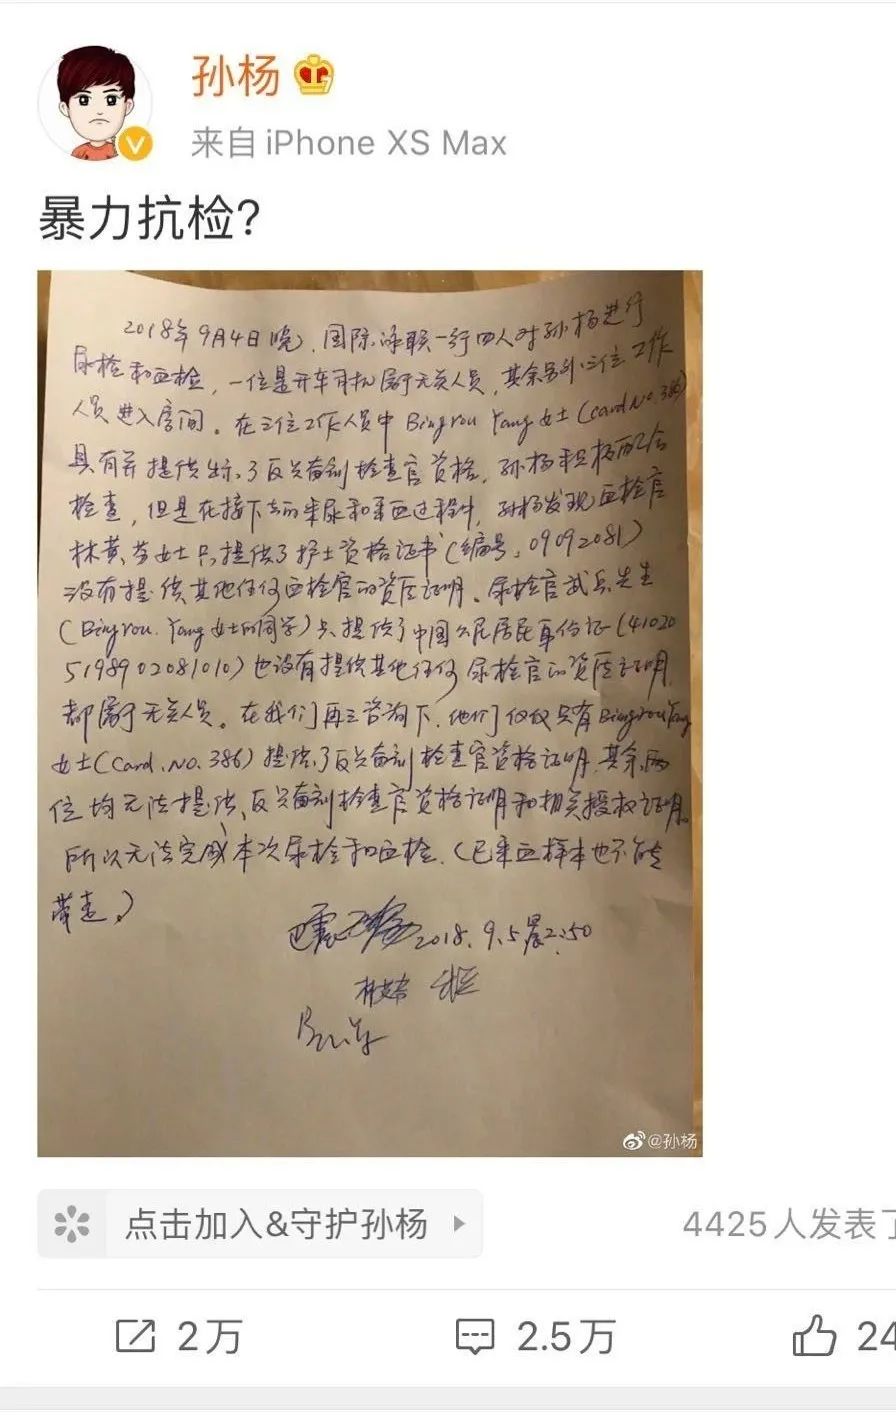 孙杨
来自 iPhone XS Max
暴力抗检?
2018年9月4日晚,国际泳联一行四人对孙杨进行
尿检和血检,一位是开车司机属于无关人员,其余另外三位工作
人员进入房间。在三位工作人员中 Bingrou Yang 女士 (card No. 386)
具有并提供出示了反兴奋剂检查官资格,孙杨积极配合
检查,但是在接下去的采尿和采血过程中,孙杨发现血检官
女士只提供了护士资格证书(编号:09092081)
没有提供其他任何血检官的资质证明。尿检官 先生
(Bingrou. Yang 女士的同学)只提供了中国公民居民身份证(41020
5198902081010)也没有提供其他任何尿检官的资质证明
都属于无关人员。在我们再三咨询下,他们仅仅只有 Bingrou Yang
女士(Card.No.386)提供了反兴奋剂检查官资格证明,其余两
位均无法提供反兴奋剂检查官资格证明和相关授权证明。
所以无法完成本次尿检和血检.(已采血样本也不能
带走。)
2018.9.5晨2:50
@孙杨
点击加入&守护孙杨
4425人发表了
2万
2.5万
24